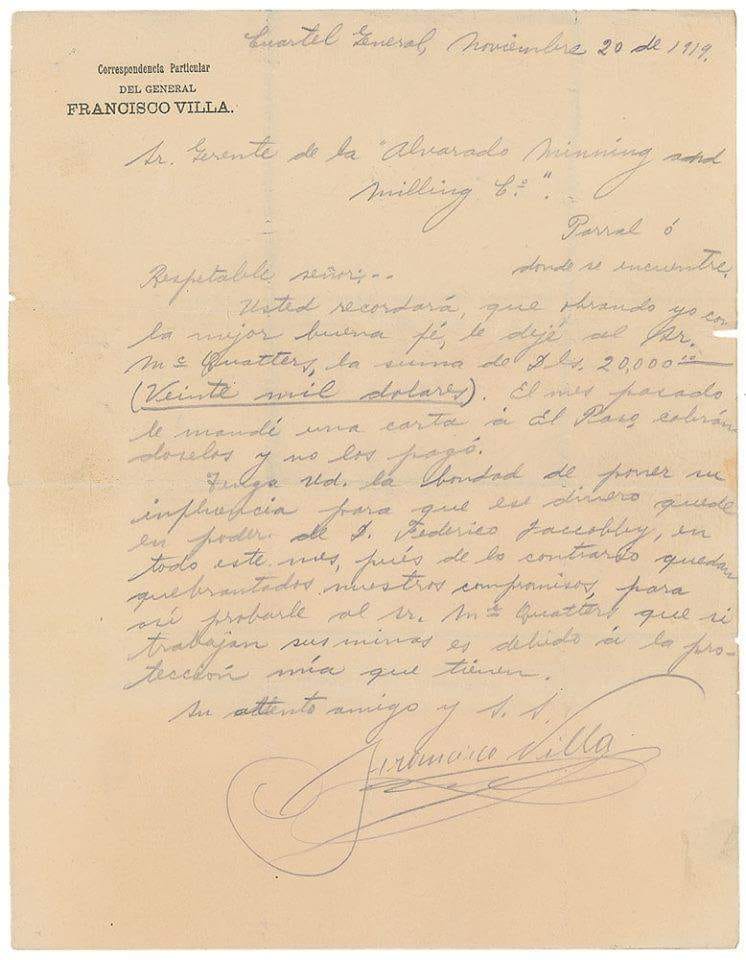 Cuartel General, Noviembre 20 de 1919.
Correspondencia Particular
DEL GENERAL
FRANCISCO VILLA.
Sr. Gerente de la "Alvarado Minning and
Milling Cº".
Parral ó
donde se encuentre.
Respetable señor:--
Usted recordará, que obrando yo con
la mejor buena fé, le dejé al Sr.
Mc Quatters, la suma de Dls. 20,000.00
(Veinte mil dolares). El mes pasado
le mandé una carta á El Paso, cobrán-
doselos y no los pagó.
Tenga Ud. la bondad de poner su
influencia para que ese dinero quede
en poder de D. Federico Jaccobby, en
todo este mes, pués de lo contrario quedan
quebrantados nuestros compromisos, para
así probarle al Sr. Mc Quatters que si
trabajan sus minas es debido á la pro-
tección mía que tienen.
Su atento amigo y S. S.
Francisco Villa